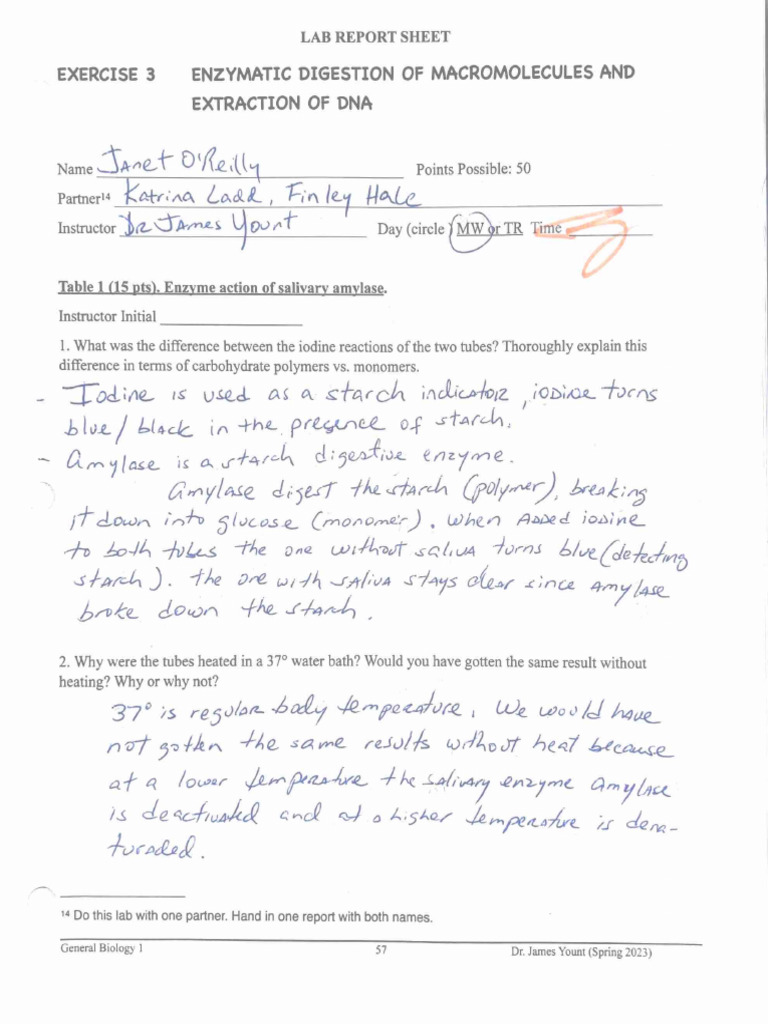 LAB REPORT SHEET
EXERCISE 3 ENZYMATIC DIGESTION OF MACROMOLECULES AND
EXTRACTION OF DNA
Name Janet O'Reilly Points Possible: 50
Partner¹⁴ Katrina Ladd, Finley Hale
Instructor Dr James Yount Day (circle) MW or TR Time
Table 1 (15 pts). Enzyme action of salivary amylase.
Instructor Initial
1. What was the difference between the iodine reactions of the two tubes? Thoroughly explain this
difference in terms of carbohydrate polymers vs. monomers.
- Iodine is used as a starch indicator, iodine turns
blue/black in the presence of starch.
- Amylase is a starch digestive enzyme.
Amylase digest the starch (polymer), breaking
it down into glucose (monomer). When added iodine
to both tubes the one without saliva turns blue (detecting
starch). the one with saliva stays clear since amylase
broke down the starch.
2. Why were the tubes heated in a 37° water bath? Would you have gotten the same result without
heating? Why or why not?
37° is regular body temperature. We would have
not gotten the same results without heat because
at a lower temperature the salivary enzyme amylase
is deactivated and at a higher temperature is dena-
turaded.
¹⁴ Do this lab with one partner. Hand in one report with both names.
General Biology 1 57 Dr. James Yount (Spring 2023)